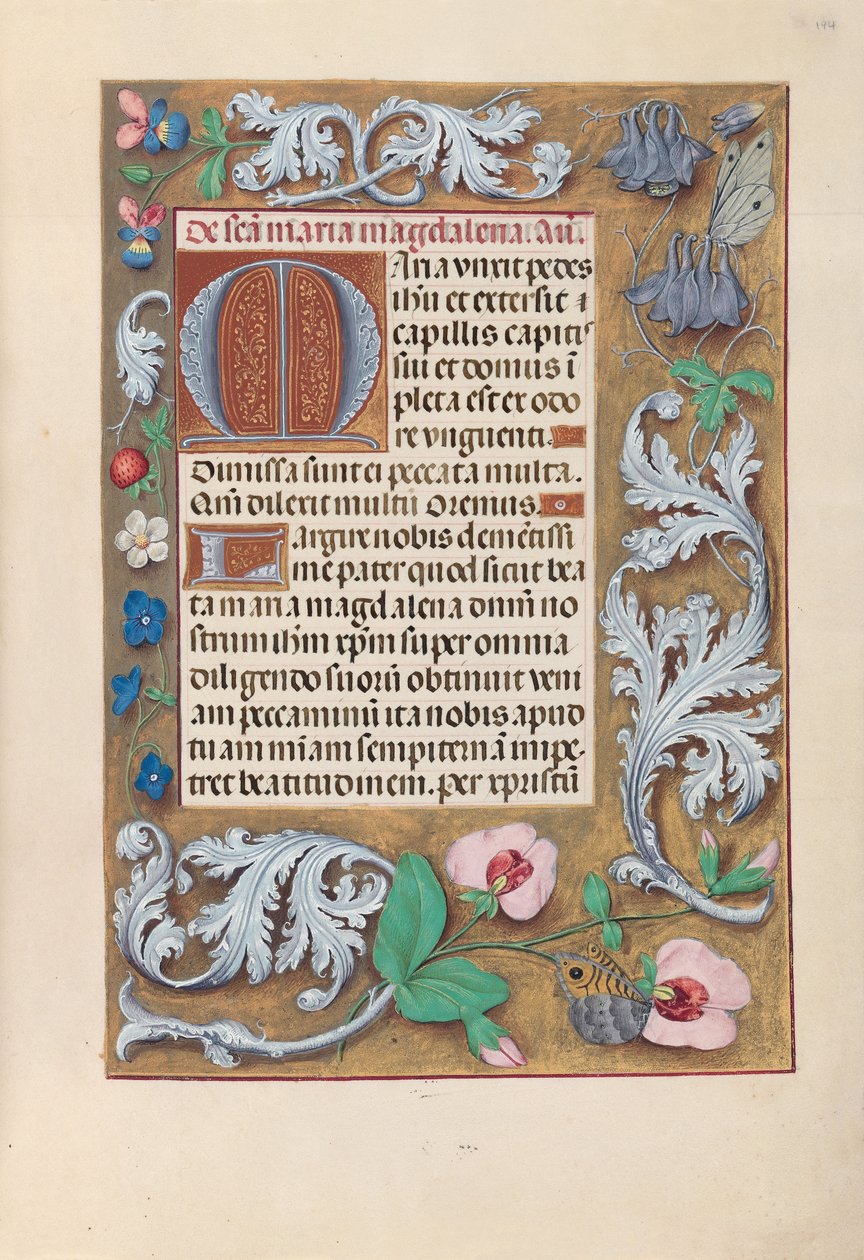 194
De scā maria magdalena. Añ.
Maria vnxit pedes
ihū et extersit
capillis capitis
sui et domus ī
pleta est ex odo
re vnguenti.
Dimissa sunt ei peccata multa.
Qm̄ dilexit multū Oremus.
Largire nobis clemētissi
me pater quod sicut bea
ta maria magdalena dnm̄ no
strum ihm̄ xpm̄ super omnia
diligendo suorū obtinuit veni
am peccaminū ita nobis apud
tuam mīam sempiternā impe-
tret beatitudinem. per xpristū